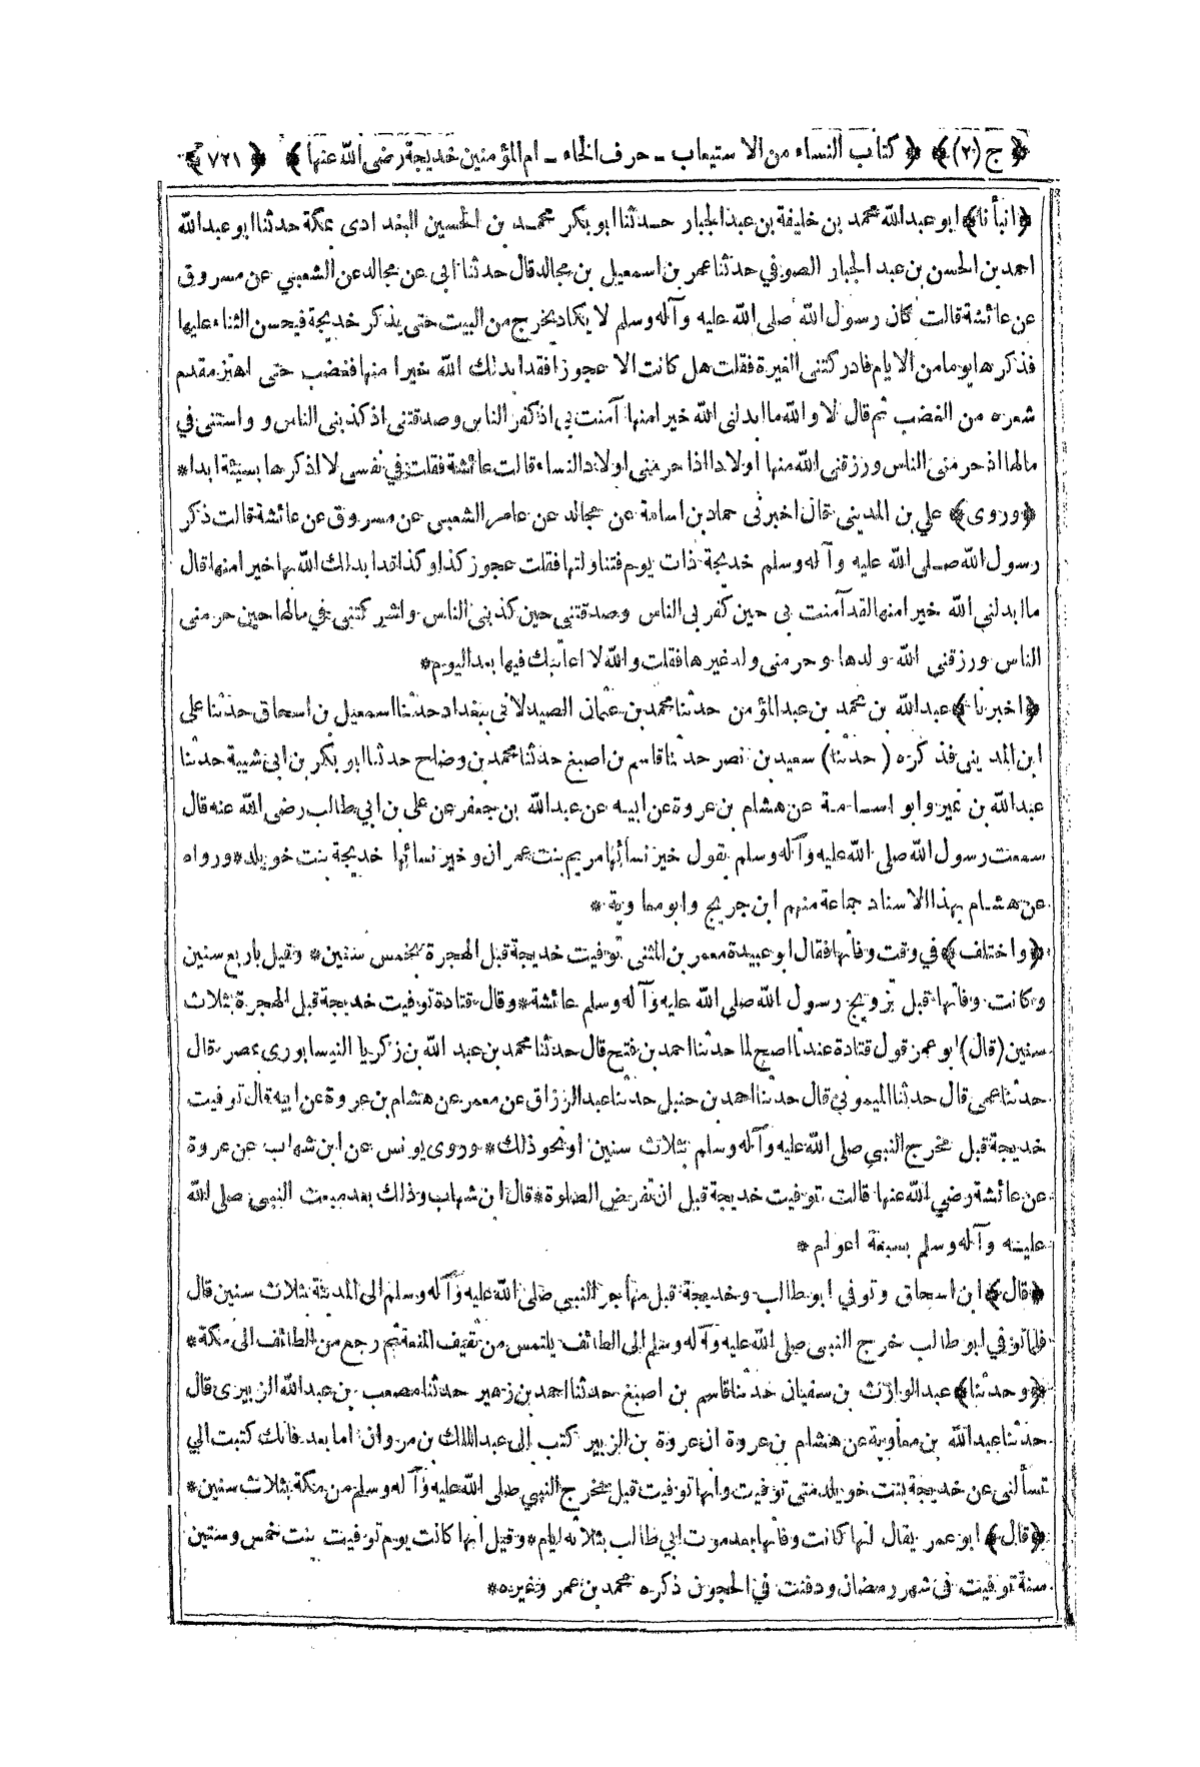 ﴿ ج (٢) ﴾ ﴿ كتاب النساء من الاستيعاب ـ حرف الخاء ـ ام المؤمنين خديجة رضى الله عنها ﴾ ﴿ ٧٢١ ﴾
﴿ انبأنا ﴾ ابو عبدالله محمد بن خليفة بن عبدالجبار حدثنا ابو بكر محمد بن الحسين البغدادى بمكة حدثنا ابو عبدالله
احمد بن الحسن بن عبد الجبار الصوفي حدثنا عمر بن اسمعيل بن مجالد قال حدثنا ابى عن مجالد عن الشعبي عن مسروق
عن عائشة قالت كان رسول الله صلى الله عليه وآله وسلم لا يكاد يخرج من البيت حتى يذكر خديجة فيحسن الثناء عليها
فذكرها يوما من الايام فادركتنى الغيرة فقلت هل كانت الا عجوزا فقد ابدلك الله خيرا منها فغضب حتى اهتز مقدم
شعره من الغضب ثم قال لا والله ما ابدلنى الله خيرا منها آمنت بى اذ كفر الناس وصدقتنى اذ كذبنى الناس و واستنى في
مالها اذ حرمنى الناس ورزقنى الله منها اولادا اذا حرمنى اولاد النساء قالت عائشة فقلت في نفسى لا اذكرها بسيئة ابدا*
﴿ وروى ﴾ علي بن المدينى قال اخبرنى حماد بن اسامة عن مجالد عن عامر الشعبى عن مسروق عن عائشة قالت ذكر
رسول الله صلى الله عليه وآله وسلم خديجة ذات يوم فتناولتها فقلت عجوز كذا وكذا قد ابدلك الله بها خيرا منها قال
ما ابدلنى الله خيرا منها لقد آمنت بى حين كفر بى الناس وصدقتنى حين كذبنى الناس واشركتنى في مالها حين حرمنى
الناس ورزقني الله ولدها وحرمنى ولد غيرها فقلت والله لا اعاتبك فيها بعد اليوم*
﴿ اخبرنا ﴾ عبدالله بن محمد بن عبدالمؤمن حدثنا محمد بن عثمان الصيدلانى ببغداد حدثنا اسمعيل بن اسحاق حدثنا على
ابن المدينى فذكره ( حدثنا ) سعيد بن نصر حدثنا قاسم بن اصبغ حدثنا محمد بن وضاح حدثنا ابو بكر بن ابى شيبة حدثنا
عبدالله بن نمير وابو اسامة عن هشام بن عروة عن ابيه عن عبدالله بن جعفر عن على بن ابي طالب رضى الله عنه قال
سمعت رسول الله صلى الله عليه وآله وسلم يقول خير نسائها مريم بنت عمران وخير نسائها خديجة بنت خويلد*ورواه
عن هشام بهذا الاسناد جماعة منهم ابن جريج وابو معاوية *
﴿ واختلف ﴾ في وقت وفاتها فقال ابو عبيدة معمر بن المثنى توفيت خديجة قبل الهجرة بخمس سنين* وقيل باربع سنين
وكانت وفاتها قبل تزويج رسول الله صلى الله عليه وآله وسلم عائشة*وقال قتادة توفيت خديجة قبل الهجرة بثلاث
سنين (قال) ابو عمر قول قتادة عندنا اصح لما حدثنا احمد بن فتح قال حدثنا محمد بن عبد الله بن زكريا النيسابورى بمصر قال
حدثنا عمى قال حدثنا الميمونى قال حدثنا احمد بن حنبل حدثنا عبد الرزاق عن معمر عن هشام بن عروة عن ابيه قال توفيت
خديجة قبل مخرج النبى صلى الله عليه وآله وسلم بثلاث سنين او نحو ذلك* وروى يونس عن ابن شهاب عن عروة
عن عائشة رضى الله عنها قالت توفيت خديجة قبل ان تفرض الصلوة*قال ابن شهاب وذلك بعد مبعث النبى صلى الله
عليه وآله وسلم بسبعة اعوام *
﴿ قال ﴾ ابن اسحاق وتوفي ابو طالب وخديجة قبل مهاجر النبى صلى الله عليه وآله وسلم الى المدينة بثلاث سنين قال
فلما توفي ابو طالب خرج النبى صلى الله عليه وآله وسلم الى الطائف يلتمس من ثقيف المنعة ثم رجع من الطائف الى مكة*
﴿ وحدثنا ﴾ عبدالوارث بن سفيان حدثنا قاسم بن اصبغ حدثنا احمد بن زهير حدثنا مصعب بن عبدالله الزبيرى قال
حدثنا عبدالله بن معاوية عن هشام بن عروة ان عروة بن الزبير كتب الى عبدالملك بن مروان اما بعد فانك كتبت الي
تسألنى عن خديجة بنت خويلد متى توفيت وانها توفيت قبل مخرج النبي صلى الله عليه وآله وسلم من مكة بثلاث سنين*
﴿ قال ﴾ ابو عمر يقال انها كانت وفاتها بعد موت ابي طالب بثلاثة ايام*وقيل انها كانت يوم توفيت بنت خمس وستين
سنة توفيت فى شهر رمضان ودفنت في الحجون ذكره محمد بن عمر وغيره*